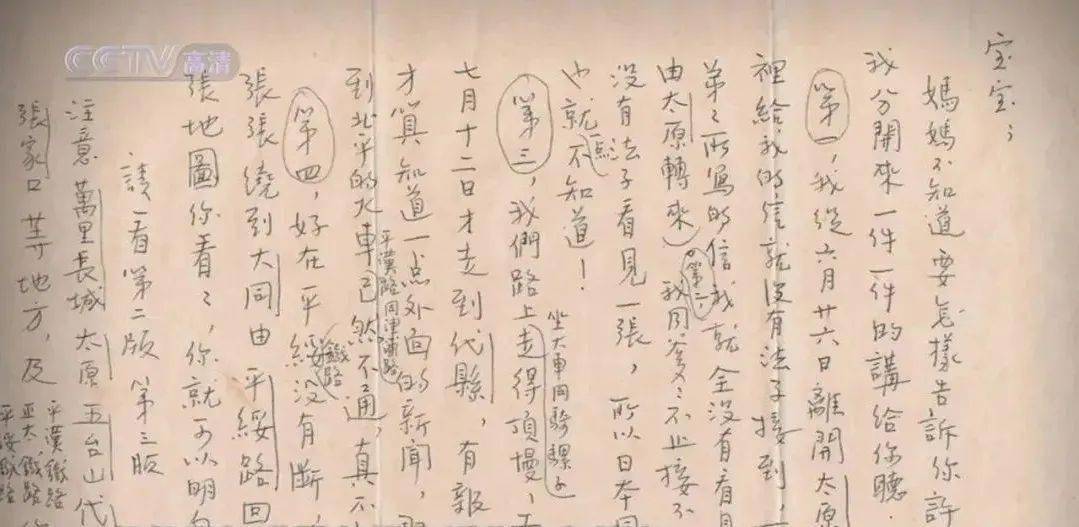 CCTV 高清
宝宝：
媽媽不知道要怎樣告訴你許
我分開來一件一件的講給你聽.
第一，我從六月廿六日離開太原
裡給我的信就沒有法子接到，
弟〻所寫的信我就全沒有看見
由太原轉來）。第二 我同爹〻不止接不
没有法子看見一張，所以日本同
也就一点不知道！
坐大車同騎騾子
第三，我們路上走得頂慢，
七月十二日才走到代縣，有報
才算知道一点外面的新聞，
平漢路同津浦路
到北平的火車已然不通，真不
第四，好在平綏鐵路没有斷，
張張繞到大同由平綏路回
張地圖你看〻，你就可以明白
請看第二版 第三版
注意萬里長城太原五台山代
張家口等地方，及
平漢鐵路
正太鐵路
平綏鐵路